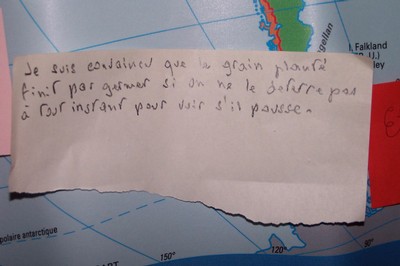 Je suis convaincu que le grain planté
finit par germer si on ne le déterre pas
à tout instant pour voir s'il pousse.
agellan
I. Falkland
U.)
ley
polaire antarctique
150°
120°
90°